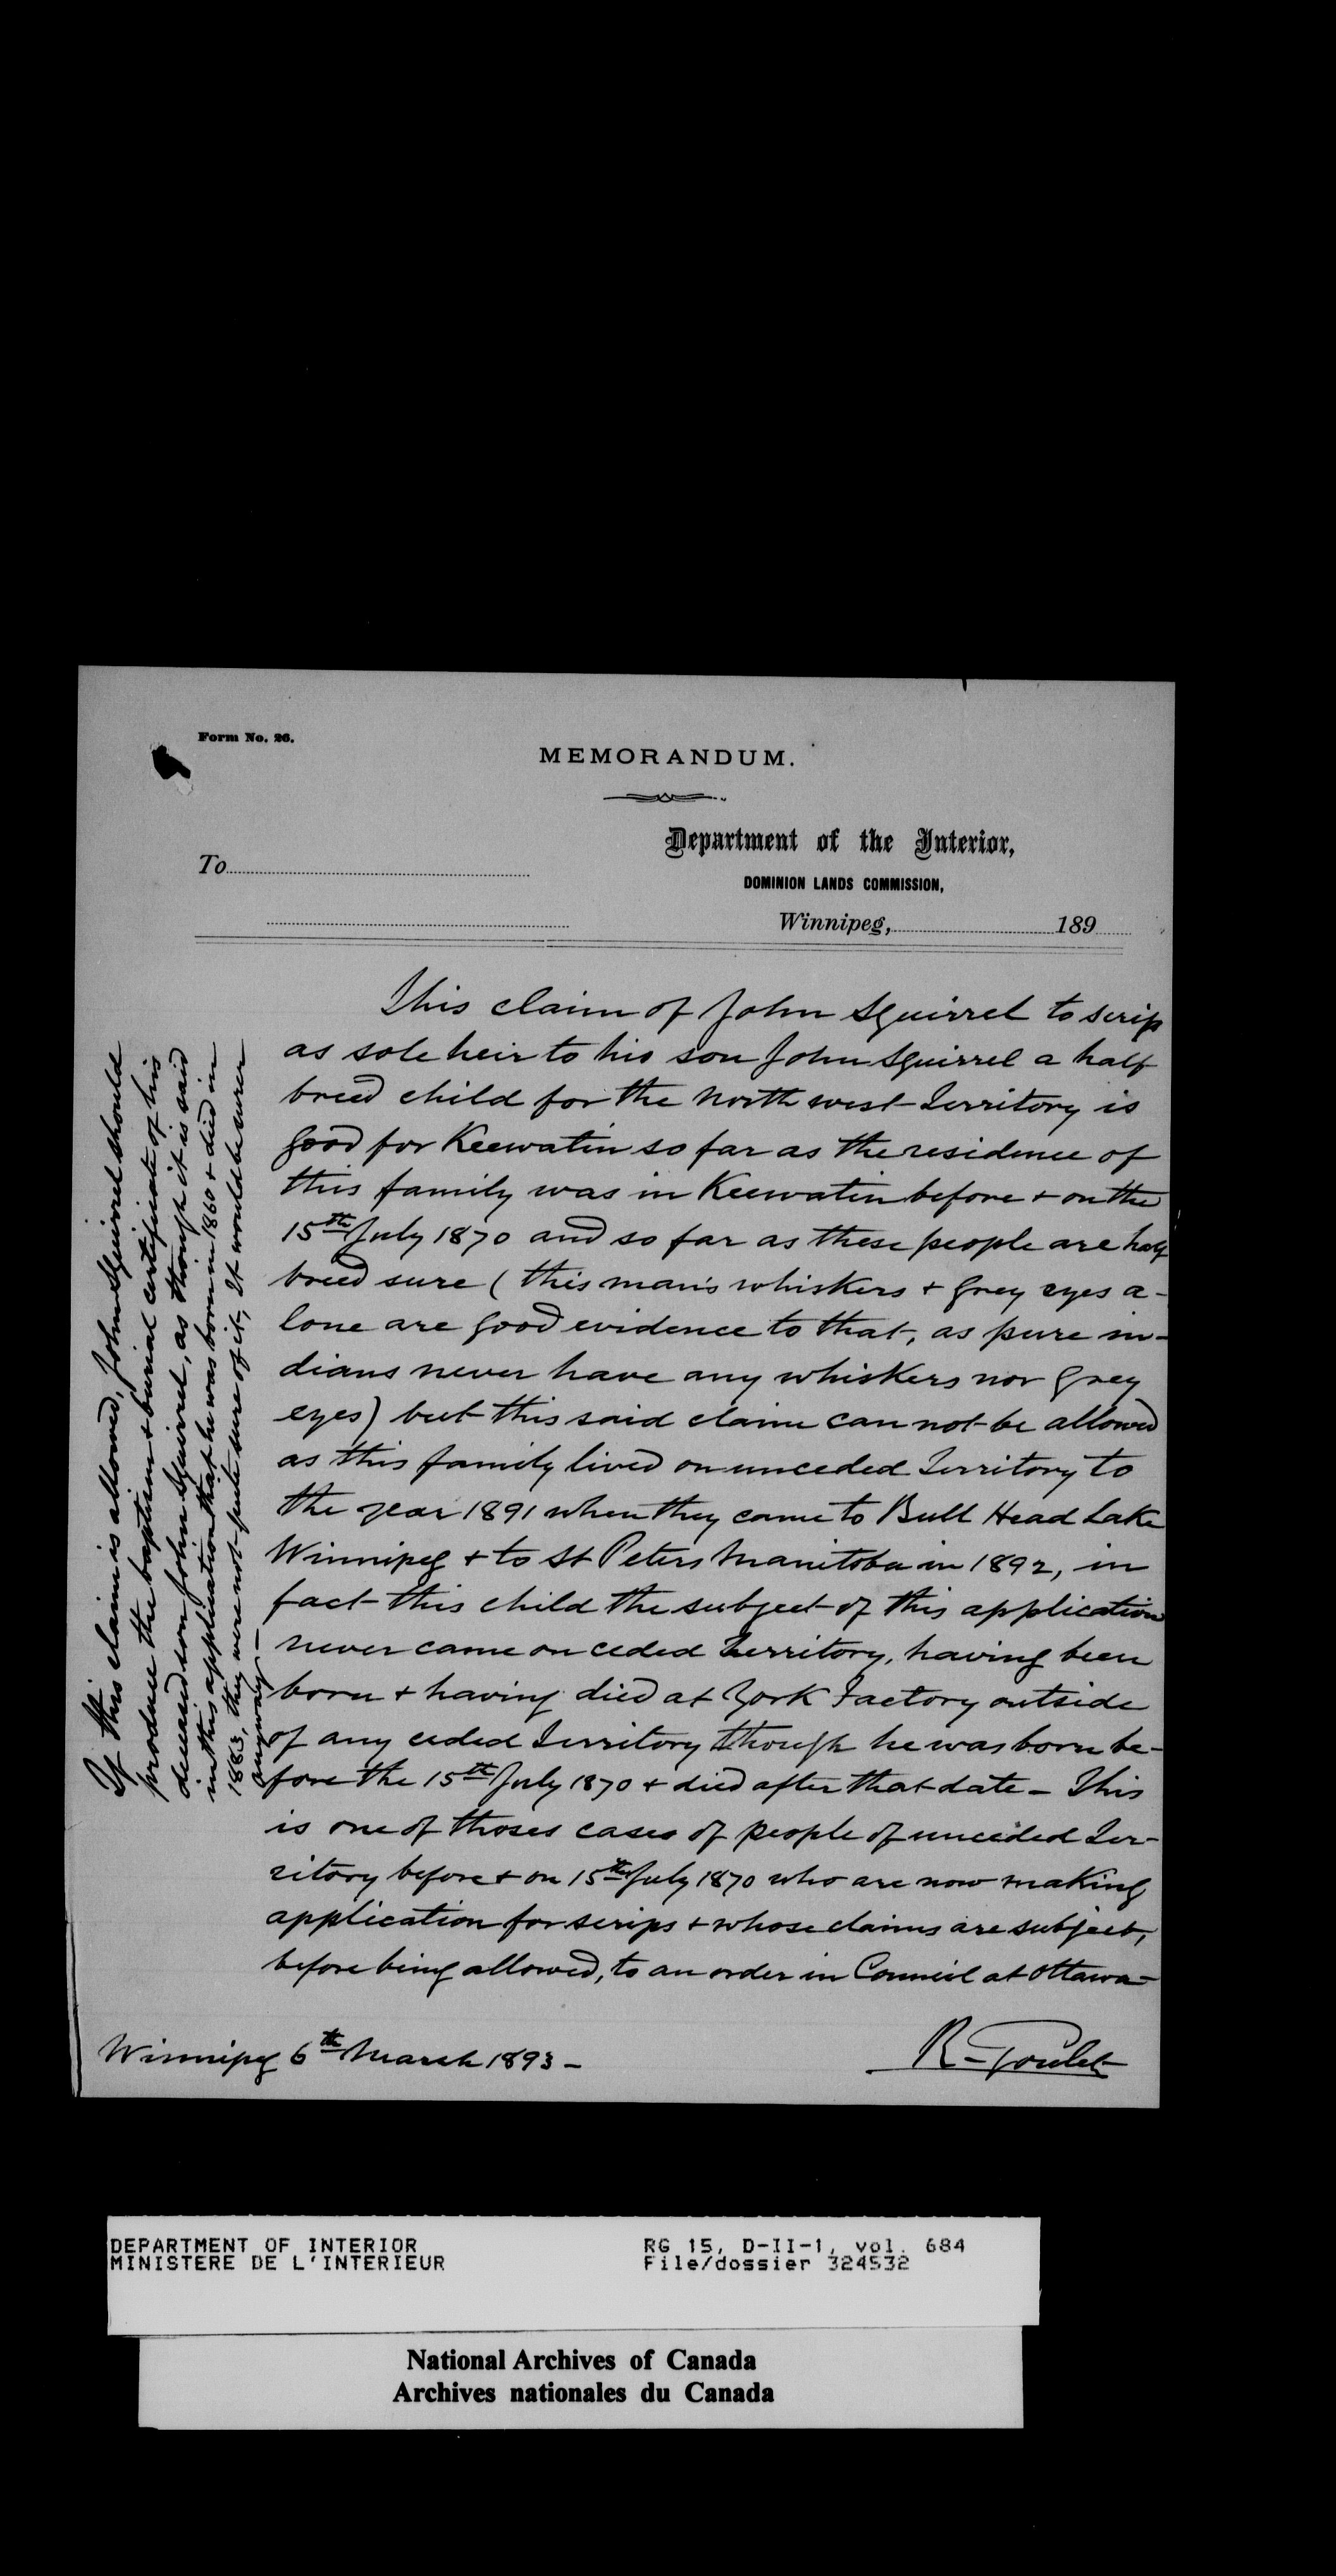 Form No. 26.
MEMORANDUM.
Department of the Interior,
To
DOMINION LANDS COMMISSION,
Winnipeg, 189
This claim of John Squirrel to scrip
as sole heir to his son John Squirrel a half
breed child for the North west Territory is
good for Keewatin so far as the residence of
this family was in Keewatin before + on the
15th July 1870 and so far as these people are half
breed sure ( this man's whiskers + grey eyes a-
lone are good evidence to that, as pure in-
dians never have any whiskers nor grey
eyes) but this said claim can not be allowed
as this family lived on unceded Territory to
the year 1891 when they came to Bull Head Lake
Winnipeg + to St Peters Manitoba in 1892, in
fact this child the subject of this application
never came on ceded Territory, having been
born + having died at York Factory outside
of any ceded Territory though he was born be-
fore the 15th July 1870 + died after that date - This
is one of thoses cases of people of unceded Ter-
ritory before + on 15th July 1870 who are now making
application for scrips + whose claims are subject,
before being allowed, to an order in Council at Ottawa -
Winnipeg 6th March 1893 -
R - Goulet
If this claim is allowed, John Squirrel should
produce the baptism + burial certificate of his
deceased son John Squirrel, as though it is said
in this application that he was born in 1860 + died in
1883, they were not quite sure of it, It would be surer
anyway -
DEPARTMENT OF INTERIOR
MINISTERE DE L'INTERIEUR
RG 15, D-II-1, vol. 684
File/dossier 324532
National Archives of Canada
Archives nationales du Canada